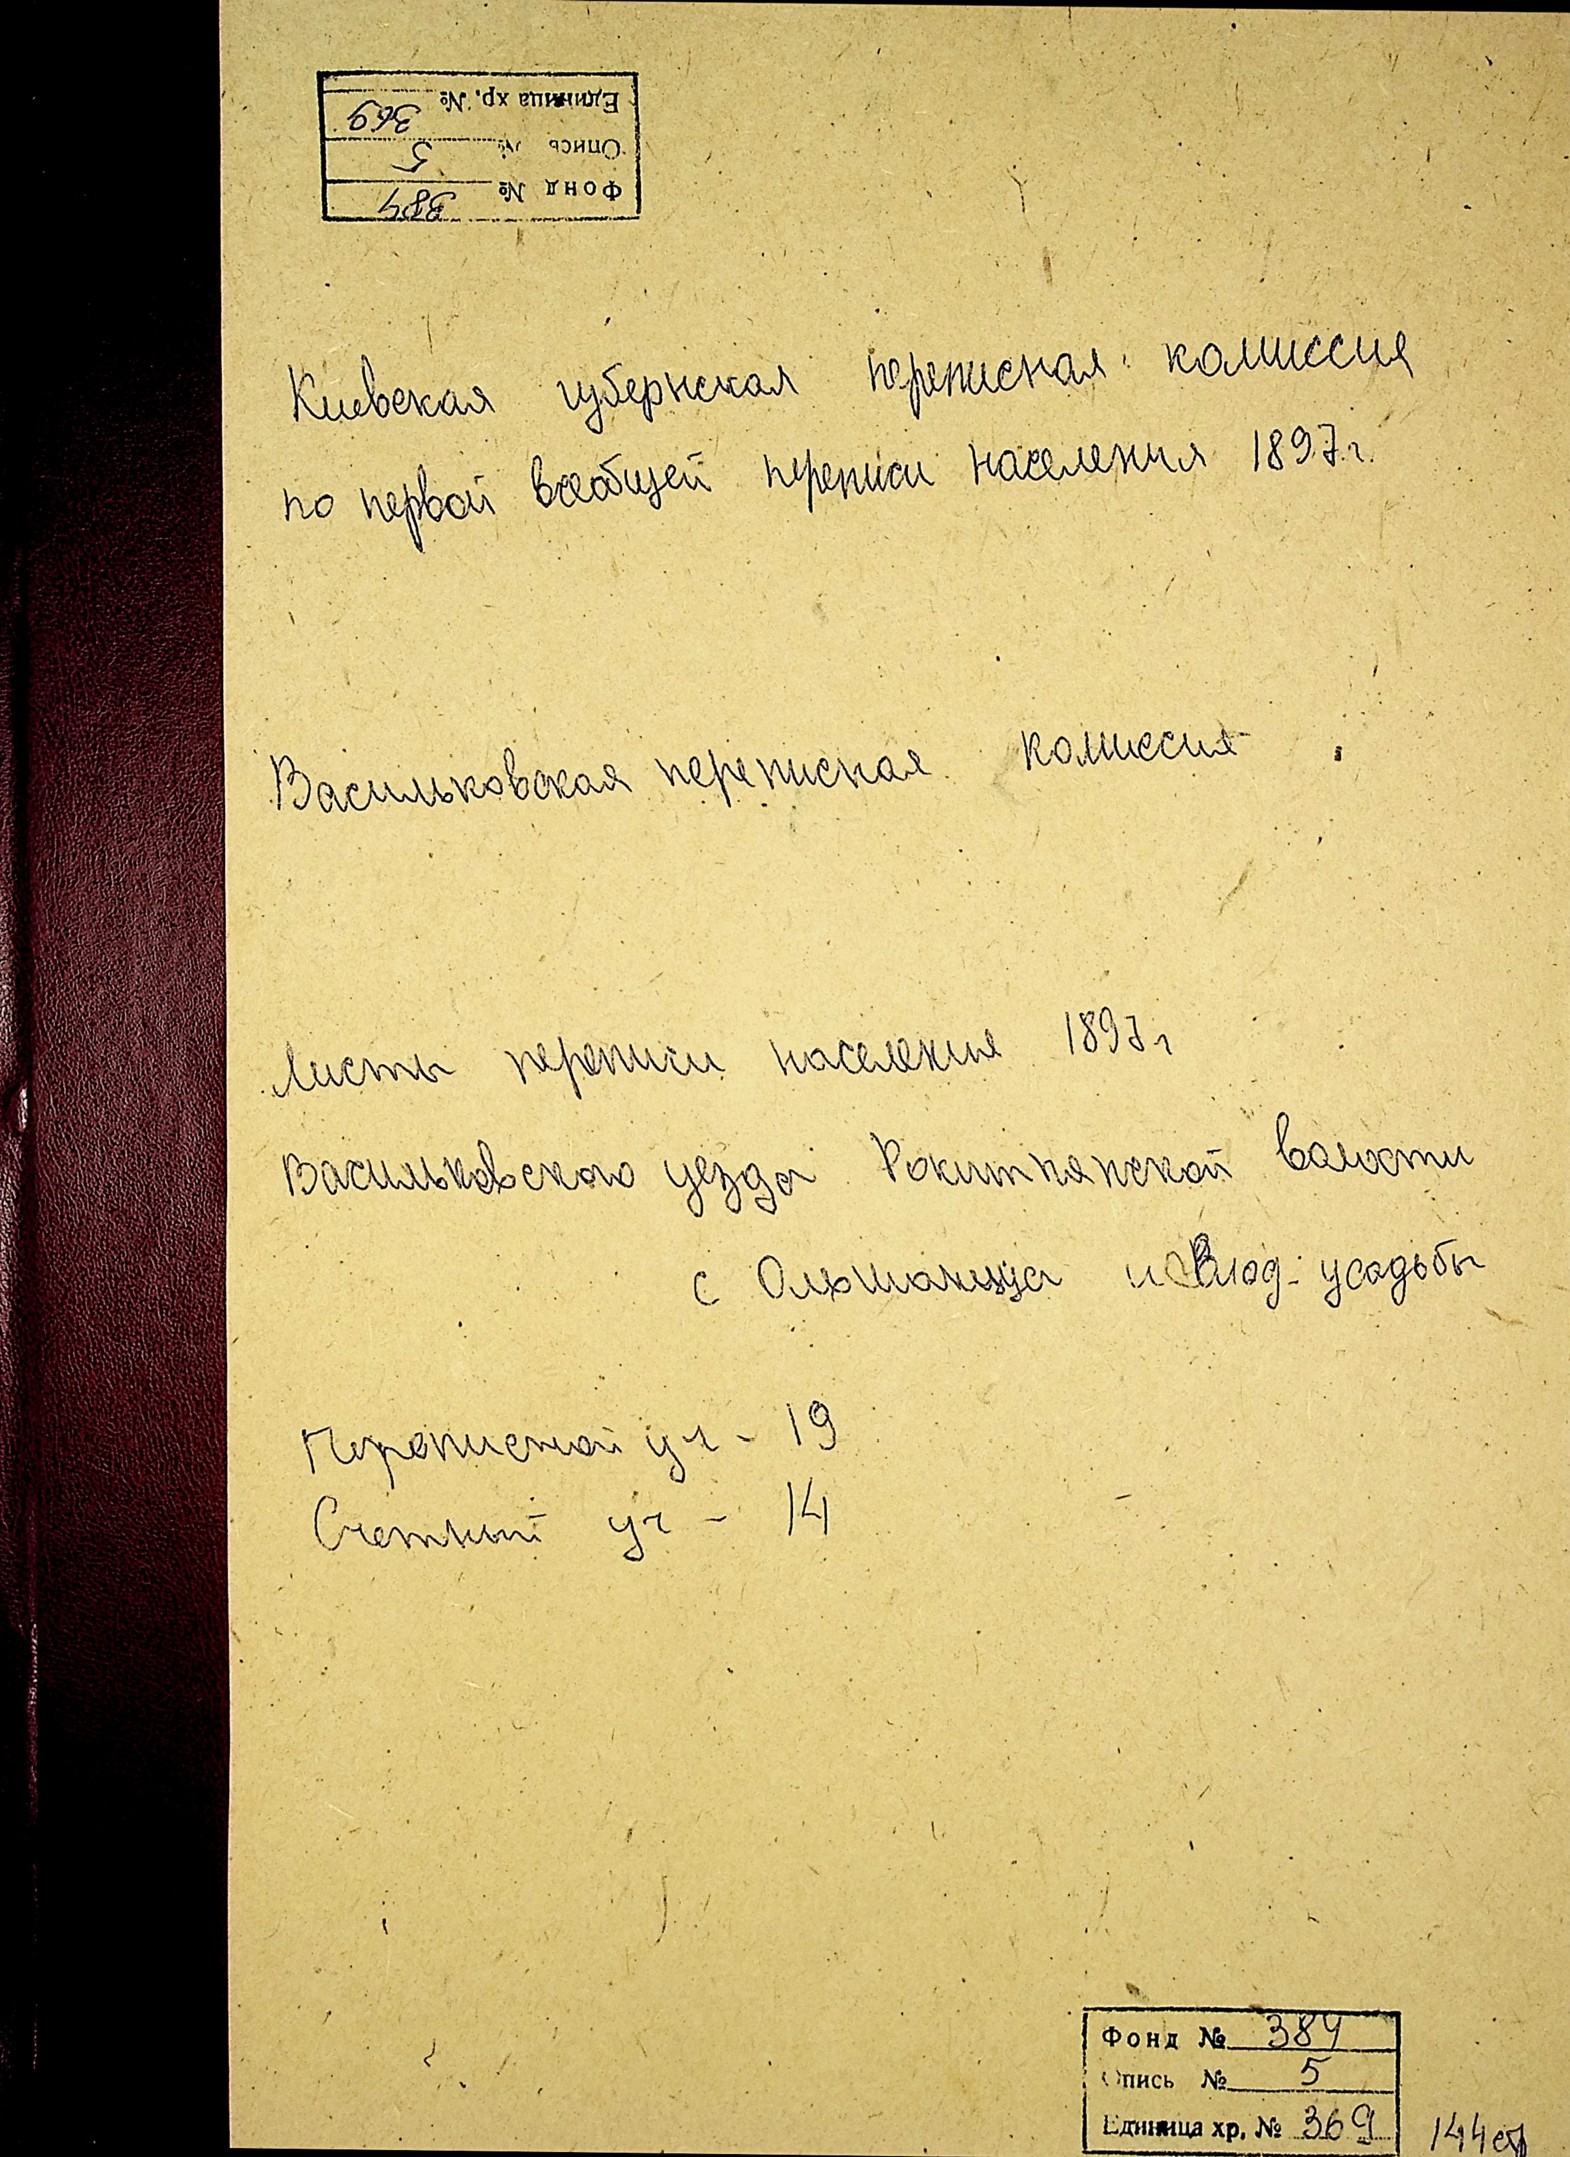 Единица хр. № 369
Опись № 5
Фонд № 384
Киевская губернская переписная комиссия
по первой всеобщей переписи населения 1897 г.
Васильковская переписная комиссия
Листы переписи населения 1897 г
Васильковского уезда Рокитнянской волости
с Ольшаница и влад. усадьбы
Переписной уч - 19
Счетный уч - 14
Фонд № 384
Опись № 5
Единица хр. № 369
144 стр